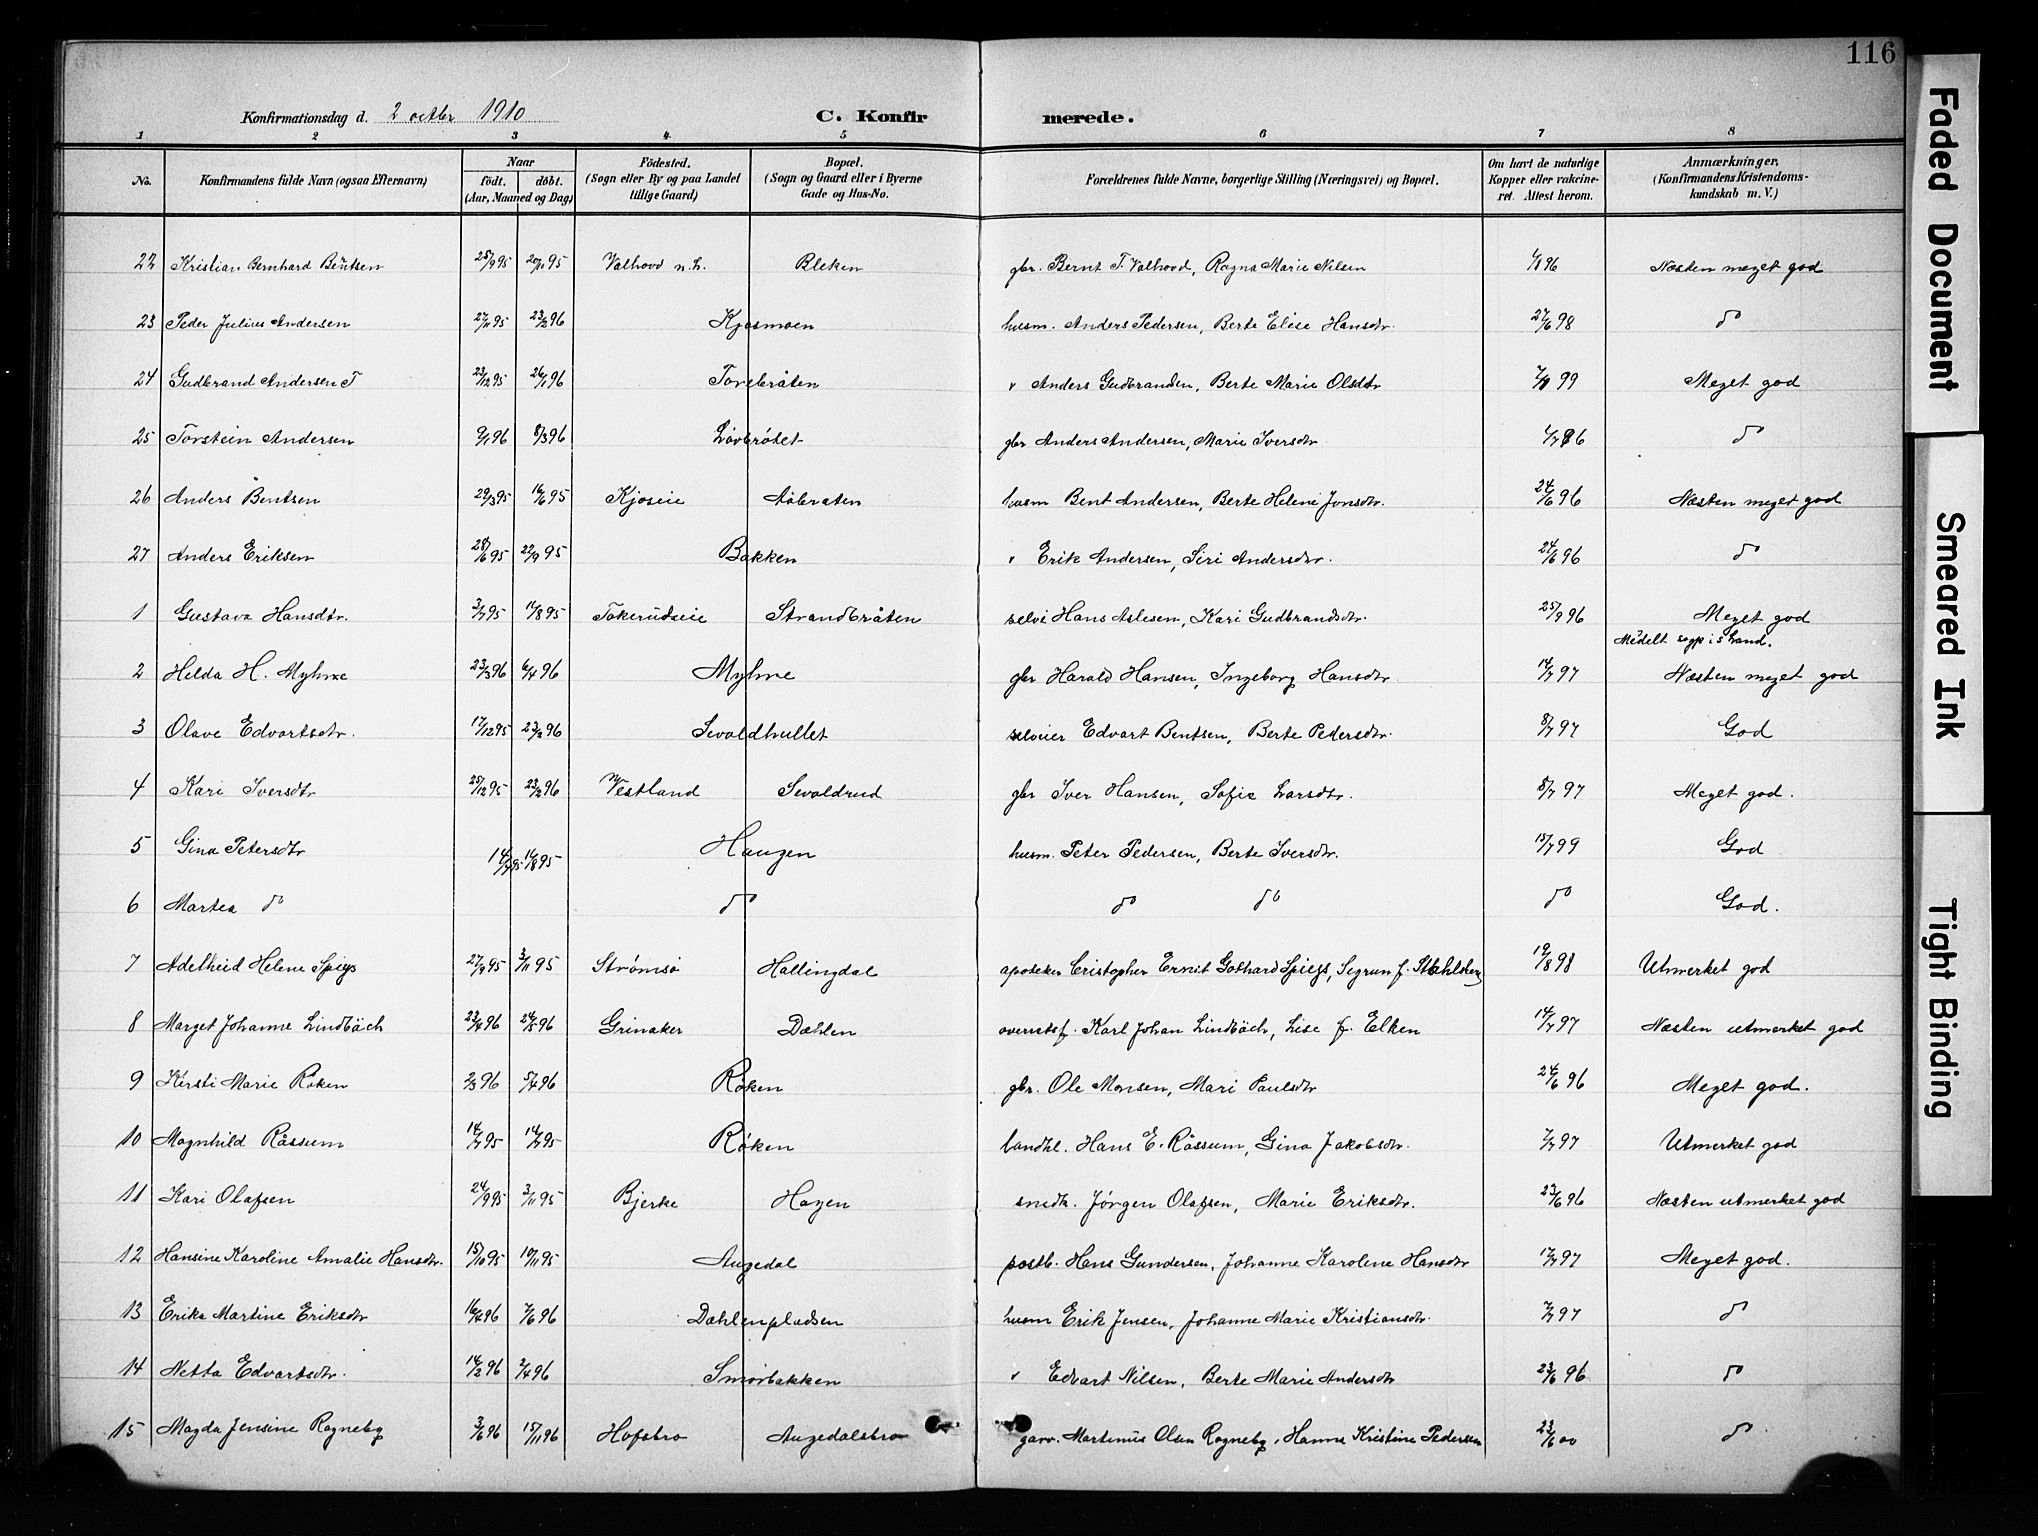 116
Konfirmationsdag d. 2 octber 1910
C. Konfirmerede.
1 2 3 4 5 6 7 8
No. Konfirmandens fulde Navn (ogsaa Efternavn) Naar født. døbt. (Aar, Maaned og Dag) Födested. (Sogn eller By og paa Landet tillige Gaard) Bopæl. (Sogn og Gaard eller i Byerne Gade og Hus-No. Forældrenes fulde Navne, borgerlige Stilling (Næringsvei) og Bopæl. Om havt de naturlige Kopper eller vakcineret. Attest herom. Anmærkninger. (Konfirmandens Kristendomskundskab m. V.)
22 Kristian Bernhard Bentsen 25/9 95 20/1 95 Valhovd n.L. Bleken gbr. Bernt T. Valhovd, Ragna Marie Nilsen 1/8 96 Næsten meget god
23 Peder Julius Andersen 27/11 95 23/2 96 Kjosmoen husm. Anders Pedersen, Berte Elise Hansdtr. 27/6 98 do
24 Gudbrand Andersen T 23/12 95 26/1 96 Torsbråten " Anders Gudbrandsen, Berte Marie Olsdtr 99 Meget god
25 Torstein Andersen 9/1 96 8/3 96 Lövbrötet gbr Anders Andersen, Marie Iversdtr do
26 Anders Bentsen 29/3 95 16/6 95 Kjoseie Aabraten husm Bent Andersen, Berte Helene Jonsdtr. 24/6 96 Næsten meget god
27 Anders Eriksen 28/6 95 22/9 95 Bakken " Erik Andersen, Siri Andersdtr. 24/6 96 do
1 Gustava Hansdtr. 3/7 95 18/8 95 Tokerudseie Strandbråten selvei Hans Aslesen, Kari Gudbrandsdtr. 25/9 96 Meget god
Medelt sogp i Strand.
2 Helda H. Myhre 23/3 96 6/4 96 Myhre gbr Harald Hansen, Ingeborg Hansdtr. 14/7 97 Næsten meget god
3 Olave Edvartsdtr. 17/12 95 23/2 96 Sevaldhullet selveier Edvart Bentsen, Berte Pedersdtr. 8/7 97 God
4 Kari Iversdtr 25/12 95 23/2 96 Vestland Sevaldrud gbr Iver Hansen, Sofie Larsdtr. 8/7 97 Meget god.
5 Gina Petersdtr 14/7 95 16/8 95 Haugen husm. Peter Pedersen, Berte Iversdtr. 15/7 99 God
6 Martea do do do do do God.
7 Adelheid Helene Spiegs 27/9 95 3/11 95 Strømsö Hallingdal apoteker Cristopher Ernst Gothard Spiegs, Segrun f. 19/8 98 Utmerket god
8 Marget Johanne Lindbäch 23/4 96 24/5 96 Grinaker Dæhlen overstef. Karl Johan Lindbäch, Lise f. Elken 14/7 97 Næsten utmerket god
9 Kersti Marie Röken 2/3 96 5/4 96 Röken gbr. Ole Monsen, Mari Paulsdtr 24/6 96 Meget god.
10 Magnhild Råssum 14/7 95 14/7 95 Röken landhl. Hans E. Råssum, Gina Jakobsdtr. 7/7 97 Utmerket god
11 Kari Olafsen 24/9 95 3/11 95 Bjerke Hagen snedk. Jörgen Olafsen, Marie Eriksdtr. 23/6 96 Næsten utmerket god
12 Hansine Karoline Amalie Hansdtr. 15/10 95 10/11 95 Augedal postb. Hans Gundersen, Johanne Karolene Hansdtr 17/7 97 Meget god.
13 Erika Martine Eriksdtr 16/4 96 7/6 96 Dæhlenpladsen husm Erik Jensen, Johanne Marie Kristiansdtr. 7/7 97 do
14 Netta Edvartsdtr. 14/2 96 2/4 96 Smörbakken " Edvart Nilsen, Berte Marie Andersdtr 23/6 96 do
15 Magda Jensine Rogneby 3/6 96 15/11 96 Hofsbro Augedalsbro garv. Martinius Olsen Rogneby, Hanna Kristine Pedersen 23/6 00 do
Faded Document
Smeared Ink
Tight Binding